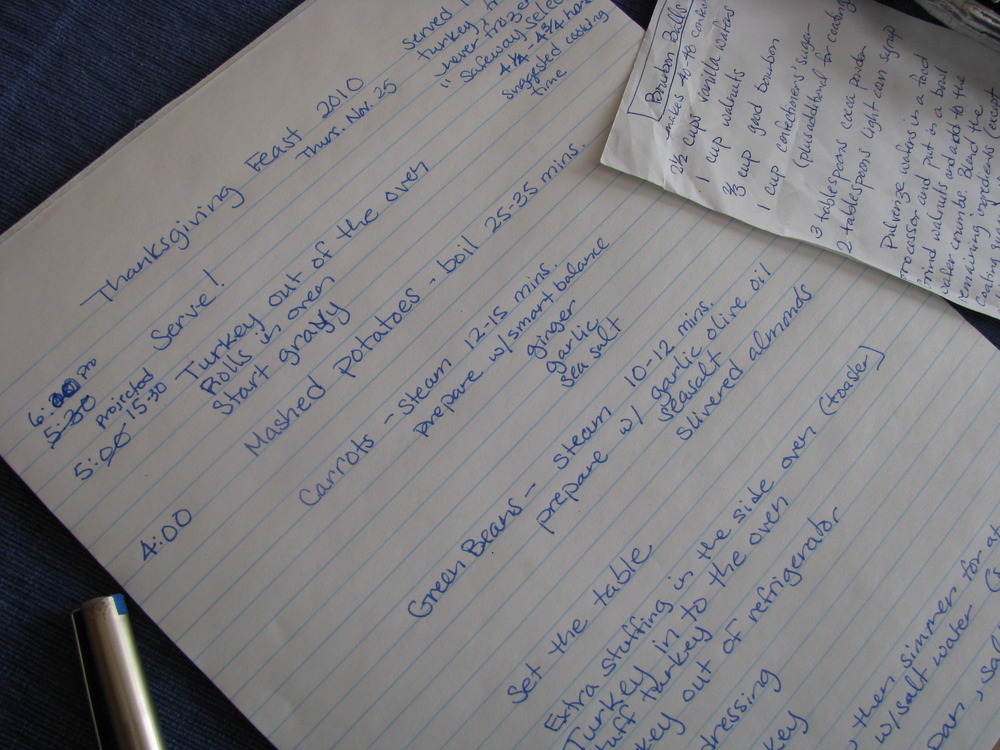 Thanksgiving Feast 2010
Thurs. Nov. 25
served
turkey,
never frozen
" Safeway Select
4 1/4 - 4 3/4 hours
suggested cooking
time
6: Pro
5:30 Projected Serve!
5:00 15-30 Turkey out of the oven
Rolls in oven
Start gravy
Mashed potatoes - boil 25-35 mins.
4:00
Carrots - steam 12-15 mins.
prepare w/smart balance
ginger
garlic
sea salt
Green Beans - steam 10-12 mins.
prepare w/ garlic olive oil
seasalt
slivered almonds
Set the table
Extra stuffing in the side oven (toaster)
Turkey in to the oven
Stuff turkey
key out of refrigerator
dressing
key
then simmer for at
w/salt water
pan, sal
Bourbon Balls
makes
2 1/2 cups vanilla wafers
1 cup walnuts
2/3 cup good bourbon
1 cup confectioners' sugar
(plus additional for coating)
3 tablespoons cocoa powder
2 tablespoons light corn syrup
Pulverize wafers in a food
processor and put in a bowl
Grind walnuts and add to the
wafer crumbs. Blend the
remaining ingredients (except
coating